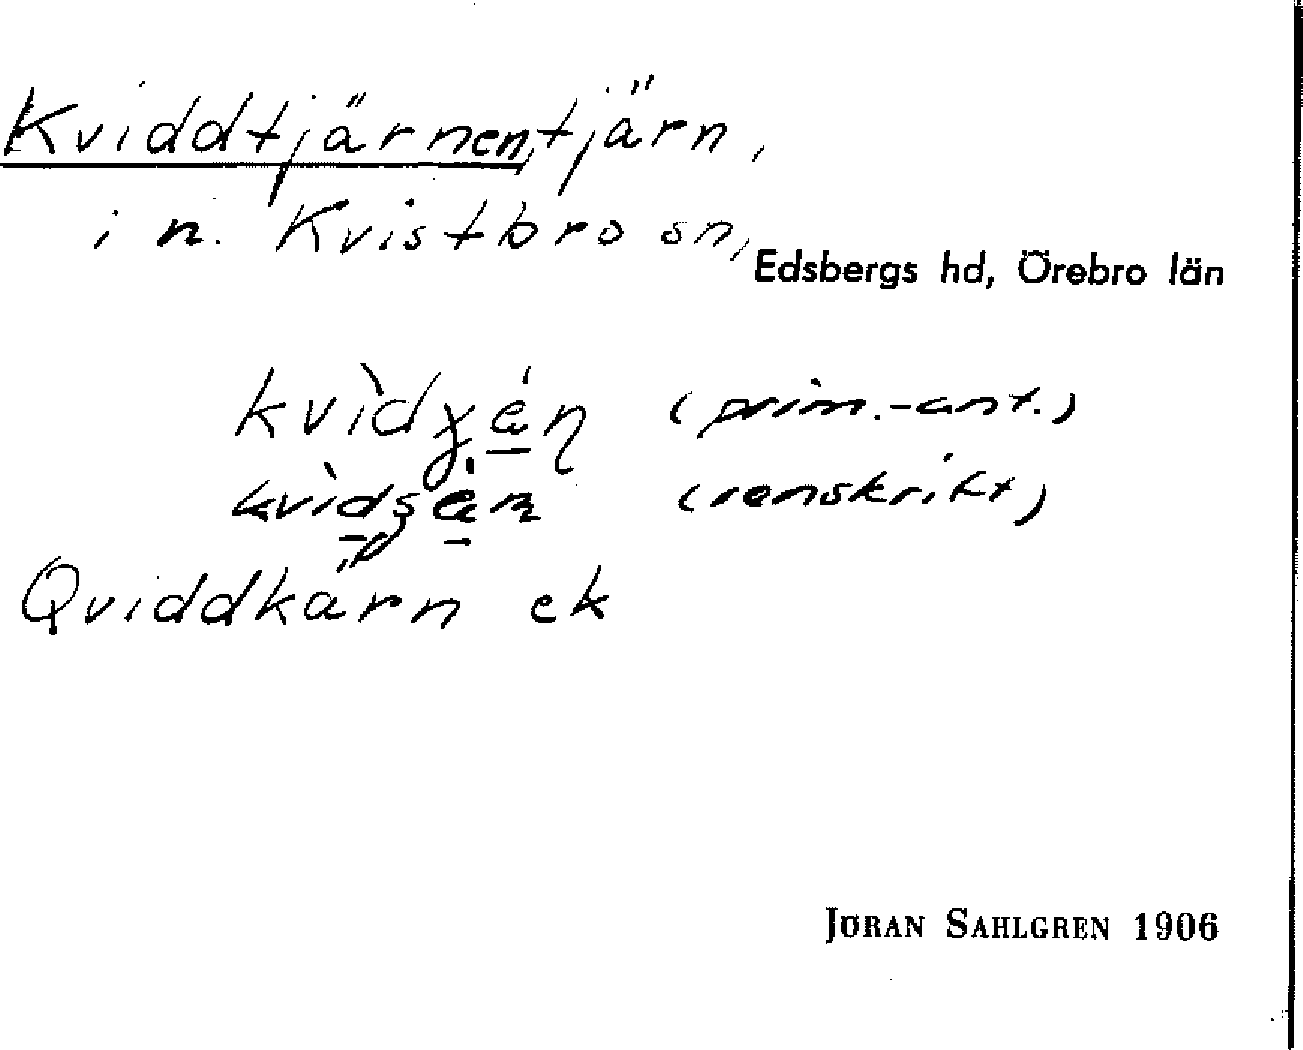 Kviddtjärnen, tjärn,
i n. Kvistbro sn,
Edsbergs hd, Örebro län
(prim.-ant.)
(renskrift)
Qviddkärn ek
JÖRAN SAHLGREN 1906